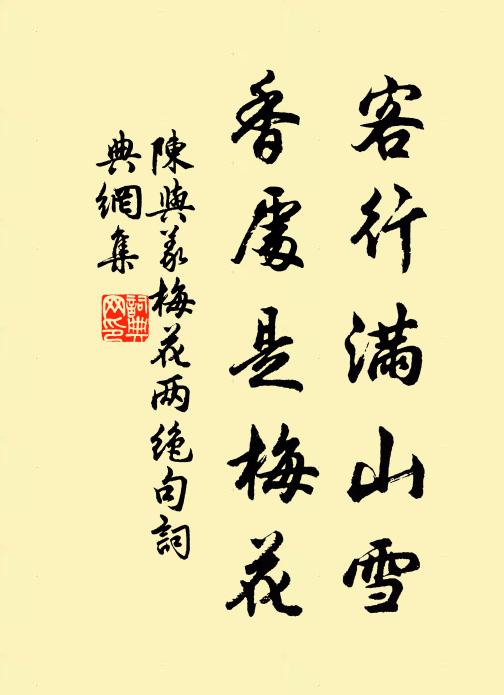 客行满山雪
香處是梅花
陳與義梅花两绝句詞
典網集
詞典网印